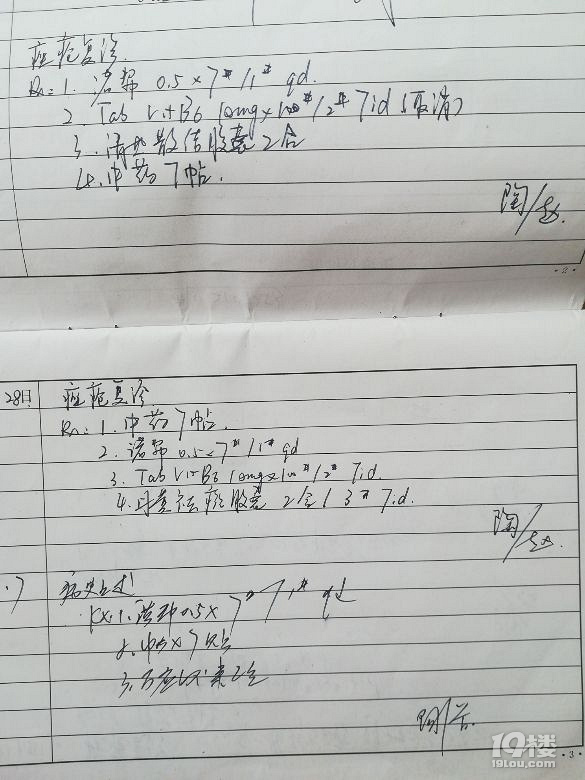 痤疮复诊
Rx: 1. 诺邦 0.5×7#/1# qd.
2 Tab Vit B6 10mg×100#/2# Tid (取消)
3. 清热散结胶囊 2合
4. 中药 7帖.
陶/
·2·
28日 痤疮复诊
Rx: 1. 中药 7帖.
2. 诺邦 0.5×7#/1# qd
3. Tab Vit B6 10mg×100#/2# Tid.
4. 丹 胶囊 2合/3# Tid.
陶/
.7 病史上述
Rx: 1. 0.5×7#/1# qd
2. 中药×7帖
3.
19楼
19lou.com
·3·